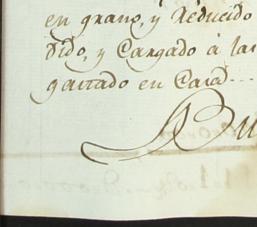 en grano, y Reducido
dido, y Cargado á las
gastado en Casa